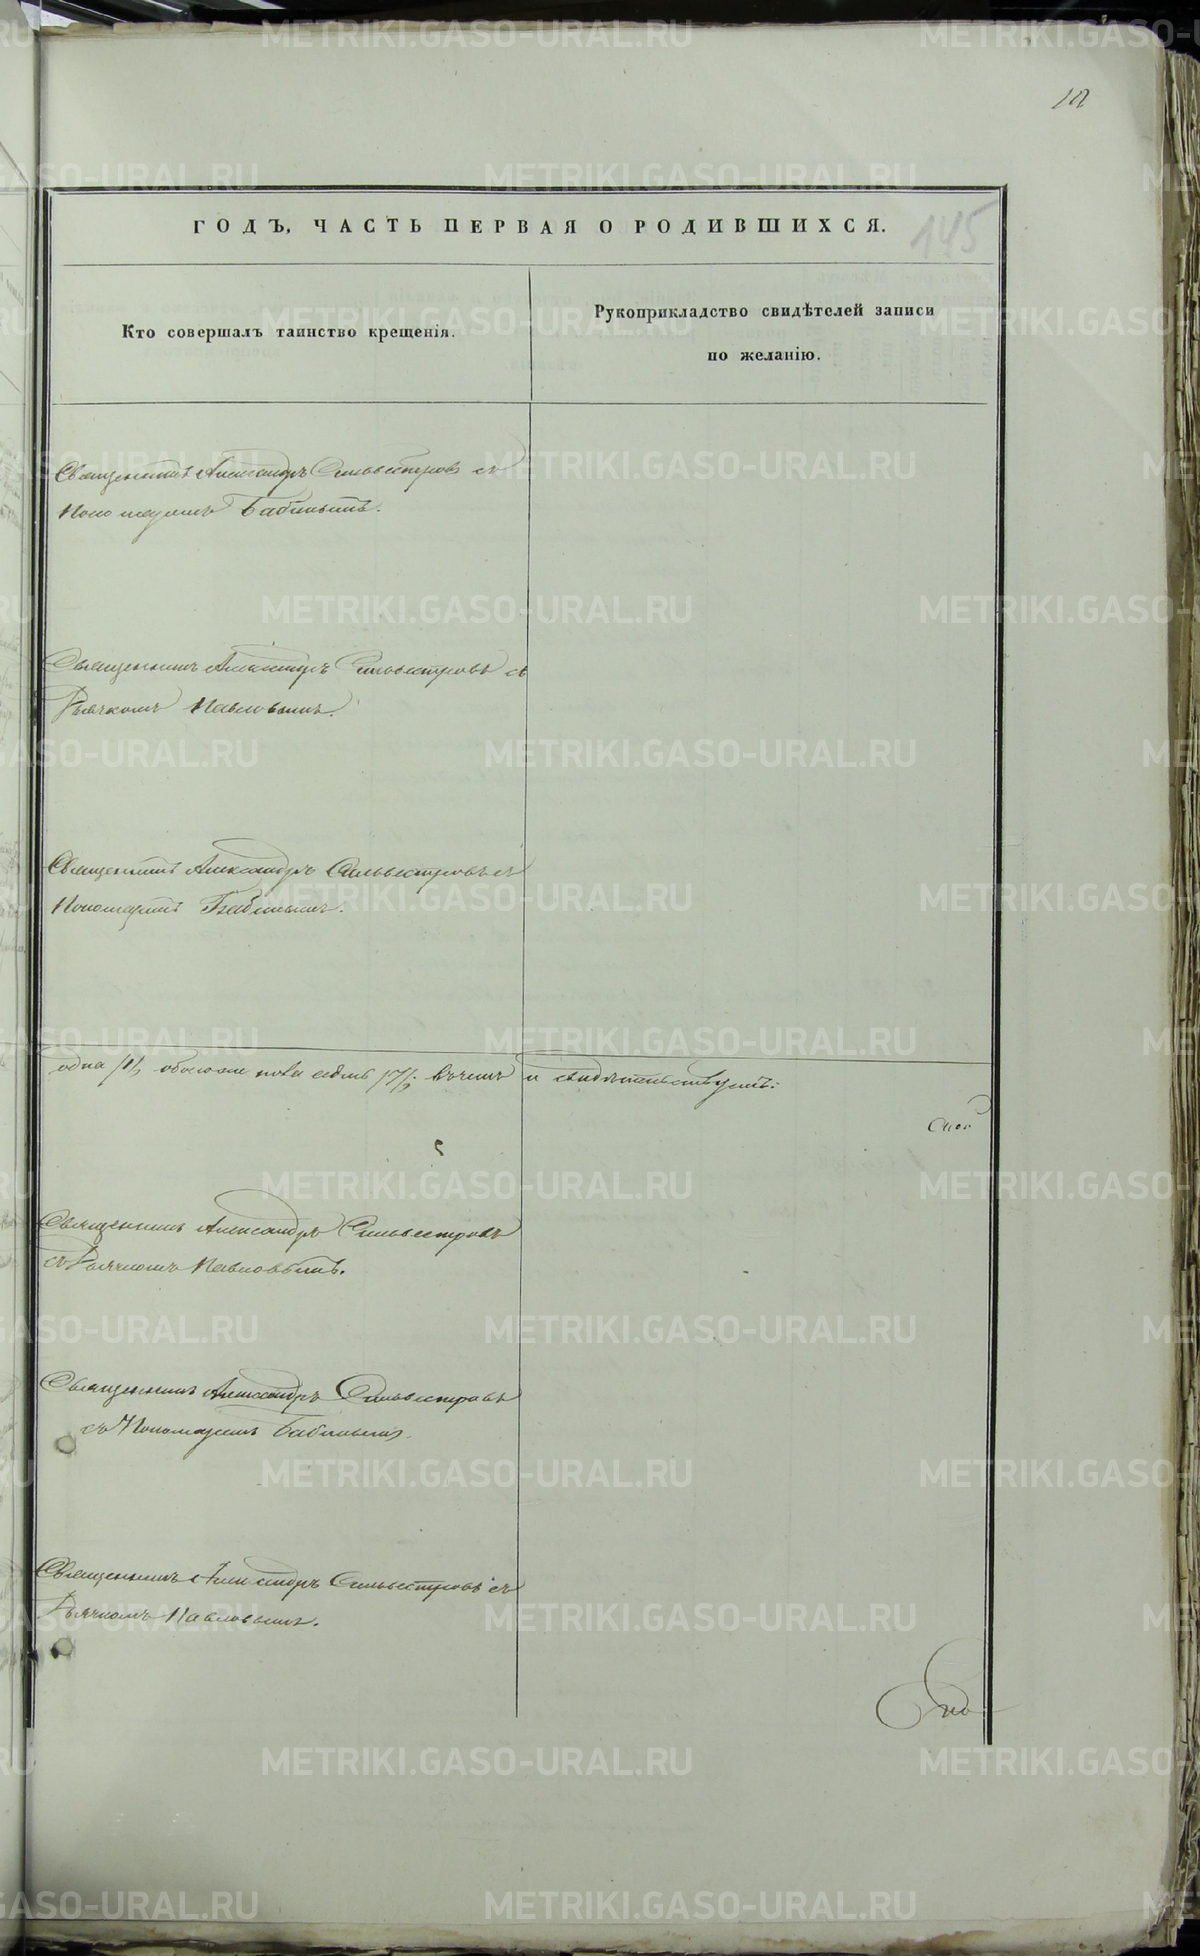 ГОДЪ, ЧАСТЬ ПЕРВАЯ О РОДИВШИХСЯ.
145
Кто совершалъ таинство крещенія.
Рукоприкладство свидѣтелей записи
по желанію.
Священникъ Александръ Сильвестровъ съ
Пономаремъ Бабинымъ.
Священникъ Александръ Сильвестровъ съ
Дьячкомъ Павловымъ.
Священникъ Александръ Сильвестровъ съ
Пономаремъ Бабинымъ.
одна /1/, обоего пола седмь /7/; въ чемъ и свидѣтельствуемъ:
Священникъ Александръ Сильвестровъ
съ Дьячкомъ Павловымъ.
Священникъ Александръ Сильвестровъ
съ Пономаремъ Бабинымъ.
Священникъ Александръ Сильвестровъ съ
Дьячкомъ Павловымъ.
METRIKI.GASO-URAL.RU